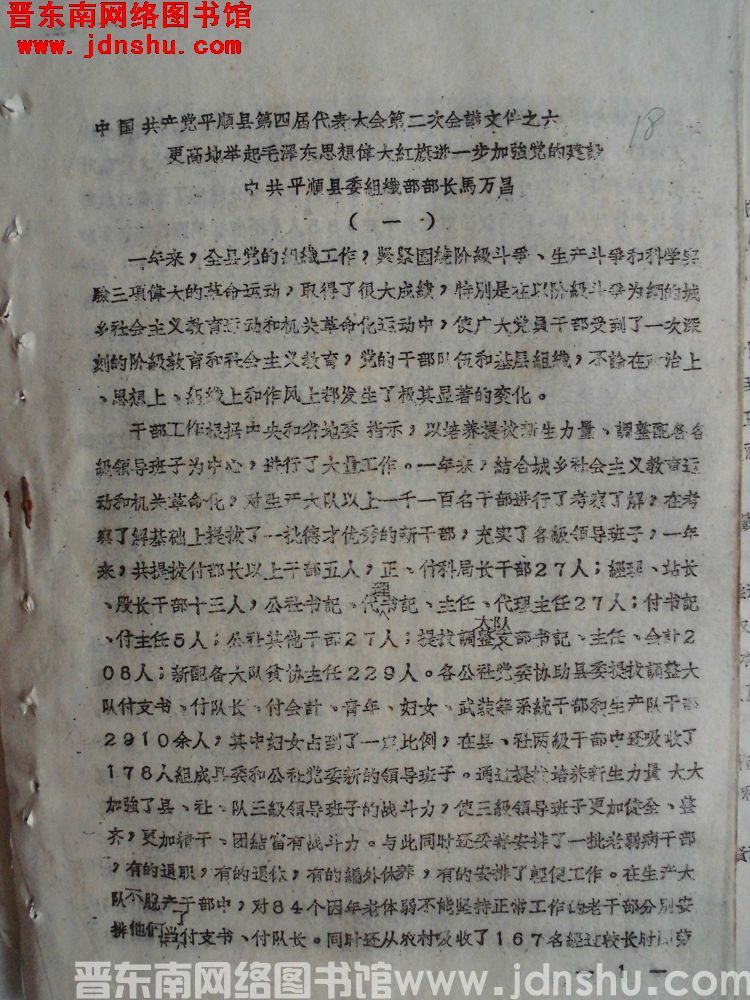 晋东南网络图书馆
www.jdnshu.com
18
中国共产党平顺县第四届代表大会第二次会議文件之六
更高地举起毛澤东思想偉大紅旗进一步加強党的建設
中共平順县委組織部部长馬万昌
（一）
一年来，全县党的組織工作，紧紧围繞阶級斗爭、生产斗爭和科学实
驗三項偉大的革命运动，取得了很大成績，特別是在以阶級斗爭为綱的城
乡社会主义教育运动和机关革命化运动中，使广大党員干部受到了一次深
刻的阶級教育和社会主义教育，党的干部队伍和基层組織，不論在政治上
、思想上、組織上和作风上都发生了极其显著的变化。
干部工作根据中央和省地委指示，以培养提拔新生力量、調整配备各
級領导班子为中心，进行了大量工作。一年来，結合城乡社会主义教育运
动和机关革命化，对生产大队以上一千一百名干部进行了考察了解，在考
察了解基础上提拔了一批德才优秀的新干部，充实了各級領导班子，一年
来，共提拔付部长以上干部五人，正、付科局长干部27人；經理、站长
、股长干部十三人，公社书記、代理书記、主任、代理主任27人；付书記
、付主任5人；公社其他干部27人；提拔調整大队支部书記、主任、会計2
08人；新配备大队貧协主任229人。各公社党委协助县委提拔調整大
队付支书、付队长、付会計、青年、妇女、武装等系統干部和生产队干部
2910余人，其中妇女占到了一定比例，在县、社两級干部中还吸收了
178人組成县委和公社党委新的領导班子。通过提拔培养新生力量大大
加強了县、社、队三級領导班子的战斗力，使三級領导班子更加健全、整
齐，更加精干、团結富有战斗力。与此同时还妥善安排了一批老弱病干部
，有的退职，有的退休，有的編外休养，有的安排了輕便工作。在生产大
队不脫产干部中，对84个因年老体弱不能坚持正常工作的老干部分別安
排他們当了付支书、付队长。同时还从农村吸收了167名經过較长时間劳
— 1 —
晋东南网络图书馆www.jdnshu.com